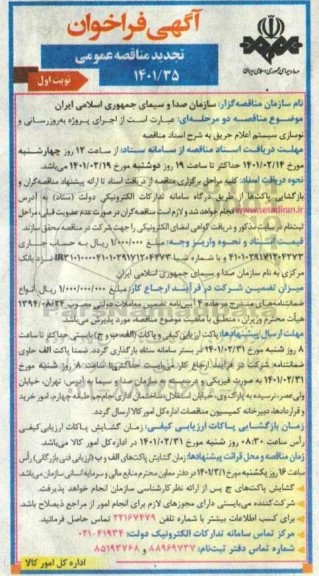 آگهی فراخوان
تجدید مناقصه عمومی
۱۴۰۱/۳۵
نوبت اول
صدا و سیمای جمهوری اسلامی ایران
نام سازمان مناقصه‌گزار: سازمان صدا و سیمای جمهوری اسلامی ایران
موضوع مناقصه دو مرحله‌ای: عبارت است از اجرای پروژه به‌روزرسانی و
نوسازی سیستم اعلام حریق به شرح اسناد مناقصه
مهلت دریافت اسناد مناقصه از سامانه ستاد: از ساعت ۱۲ روز چهارشنبه
مورخ ۱۴۰۱/۰۲/۱۴ حداکثر تا ساعت ۱۹ روز دوشنبه مورخ ۱۴۰۱/۰۲/۱۹ می‌باشد.
نحوه دریافت اسناد: کلیه مراحل برگزاری مناقصه از دریافت اسناد تا ارائه پیشنهاد مناقصه‌گران و
بازگشایی پاکت‌ها از طریق درگاه سامانه تدارکات الکترونیکی دولت (ستاد) به آدرس
www.setadiran.ir انجام خواهد شد و لازم است مناقصه‌گران در صورت عدم عضویت قبلی، مراحل
ثبت‌نام در سایت مذکور و دریافت گواهی امضای الکترونیکی را جهت شرکت در مناقصه محقق سازند.
قیمت اسناد و نحوه واریز وجه: مبلغ ۱/۰۰۰/۰۰۰ ریال به حساب جاری
نزد بانک
مرکزی به نام سازمان صدا و سیمای جمهوری اسلامی ایران
میزان تضمین شرکت در فرآیند ارجاع کار: مبلغ ۱/۰۰۰/۰۰۰/۰۰۰ ریال انواع
ضمانتنامه‌های مندرج در ماده ۴ آیین‌نامه تضمین معاملات دولتی مصوب ۱۳۹۴/۰۸/۲۴
هیأت محترم وزیران، منطبق با ماهیت موضوع مناقصه، مورد پذیرش می‌باشد.
مهلت ارسال پیشنهادها: پاکت ارزیابی کیفی و پاکات (الف، ب و ج) بایستی حداکثر تا ساعت
۸ روز شنبه مورخ ۱۴۰۱/۰۲/۳۱ در بستر سامانه ستاد بارگذاری گردد. ضمنا پاکت الف حاوی
ضمانتنامه شرکت در فرآیند ارجاع کار، می‌بایست حداکثر تا ساعت ۸ روز شنبه مورخ
۱۴۰۱/۰۲/۳۱ به صورت فیزیکی و دربسته به سازمان صدا و سیما به آدرس: تهران، خیابان
ولی‌عصر، نرسیده به پارک وی، خیابان استقلال، ساختمان اداری جام‌جم، طبقه چهارم، امور خرید
و قراردادها، دبیرخانه کمیسیون مناقصات اداره کل امور کالا ارسال گردد.
زمان بازگشایی پاکات ارزیابی کیفی: زمان گشایش پاکات ارزیابی کیفی
رأس ساعت ۰۸:۳۰ روز شنبه مورخ ۱۴۰۱/۰۲/۳۱ در اداره کل امور کالا می‌باشد.
زمان مناقصه و محل قرائت پیشنهادها: زمان گشایش پاکت‌های الف و ب (ارزیابی فنی بازرگانی) رأس
ساعت ۱۶ روز یکشنبه مورخ ۱۴۰۱/۳/۱ در دفتر معاون محترم منابع مالی و سرمایه انسانی سازمان می‌باشد.
گشایش پاکت‌های ج پس از ارائه نظر کارشناسی سازمان انجام خواهد پذیرفت.
شرکت‌کننده می‌بایستی دارای مجوزهای لازم برای انجام امور از مراجع ذیصلاح باشد.
برای کسب اطلاعات بیشتر با شماره تلفن ۲۲۱۶۷۴۷۹ تماس حاصل فرمائید.
مرکز تماس سامانه تدارکات الکترونیک دولت: ۴۱۹۳۴-۰۲۱
شماره تماس دفتر ثبت‌نام: ۸۸۹۶۹۷۳۷ و ۸۵۱۹۳۷۶۸
اداره کل امور کالا